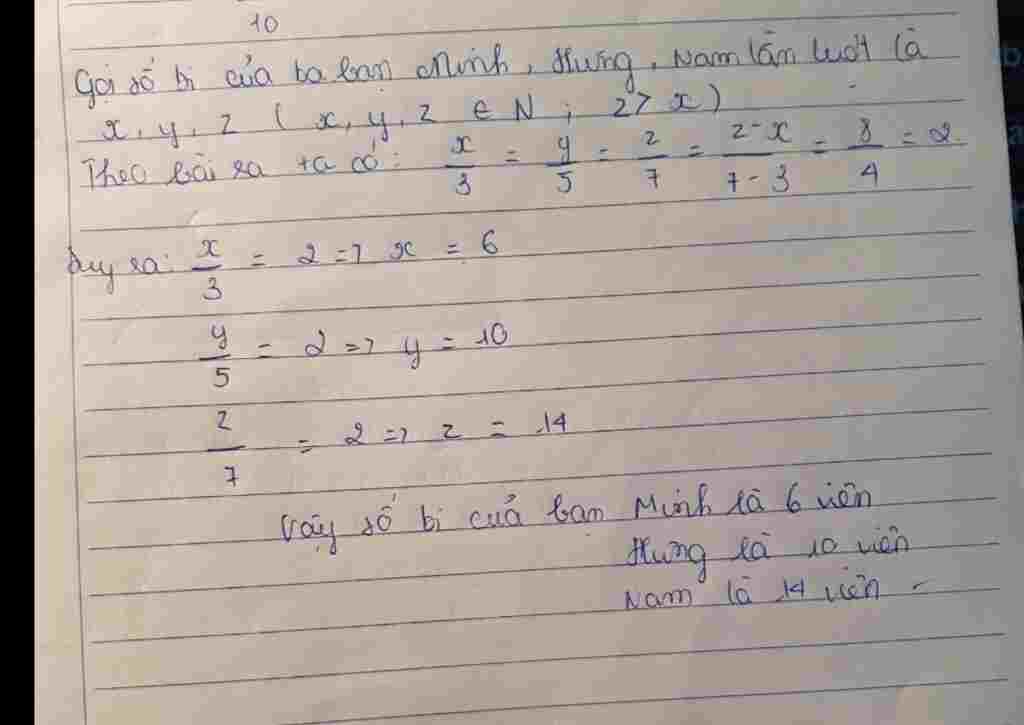 10
Gọi số bi của ba bạn Minh, Hưng, Nam lần lượt là
x, y, z ( x, y, z ∈ N ; z > x )
Theo bài ra ta có: x/3 = y/5 = z/7 = z-x/7-3 = 8/4 = 2
Suy ra: x/3 = 2 => x = 6
y/5 = 2 => y = 10
z/7 = 2 => z = 14
Vậy số bi của bạn Minh là 6 viên
Hưng là 10 viên
Nam là 14 viên